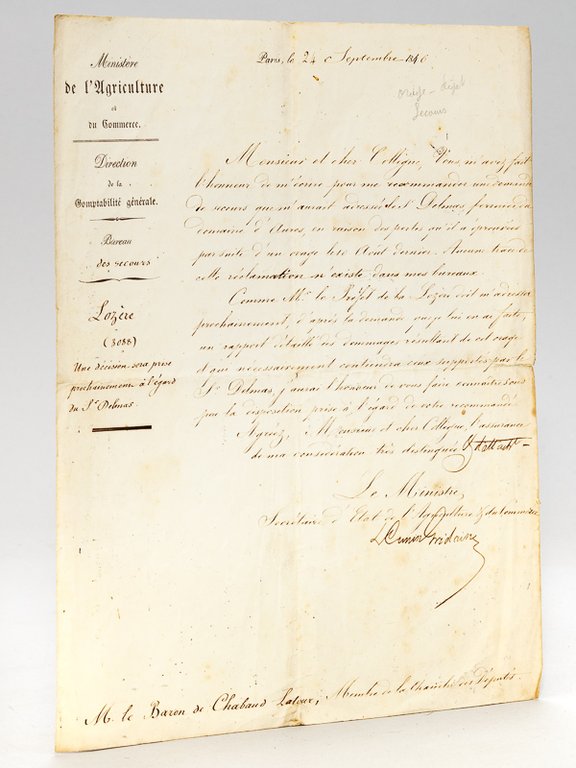 Ministère
de l'Agriculture
et
du Commerce.
Direction
de la
Comptabilité générale.
Bureau
des secours
Lozère
(3088)
Une décision sera prise
prochainement à l'égard
du Sr. Delmas.
Paris, le 24 Septembre 1846
Secours
Monsieur et cher Collègue, Vous m'avez fait
l'honneur de m'écrire pour me recommander une demande
de secours que m'aurait adressée le Sr. Delmas fermier du
domaine d'Aures, en raison des pertes qu'il a éprouvées
par suite d'un orage le 10 Août dernier. Aucune trace de
cette réclamation n'existe dans mes bureaux.
Comme Mr. le Préfet de la Lozère doit m'adresser
prochainement, d'après la demande que je lui en ai faite,
un rapport détaillé des dommages résultant de cet orage
et qui nécessairement contiendra ceux supportés par le
Sr. Delmas, j'aurai l'honneur de vous faire connaître sous
peu la disposition prise à l'égard de votre recommandé.
Agréez, Monsieur et cher Collègue, l'assurance
de ma considération très distinguée
Le Ministre,
Secrétaire d'Etat de l'Agriculture & du Commerce
L Cunin Gridaine
M. le Baron de Chabaud Latour, Membre de la Chambre des Députés.